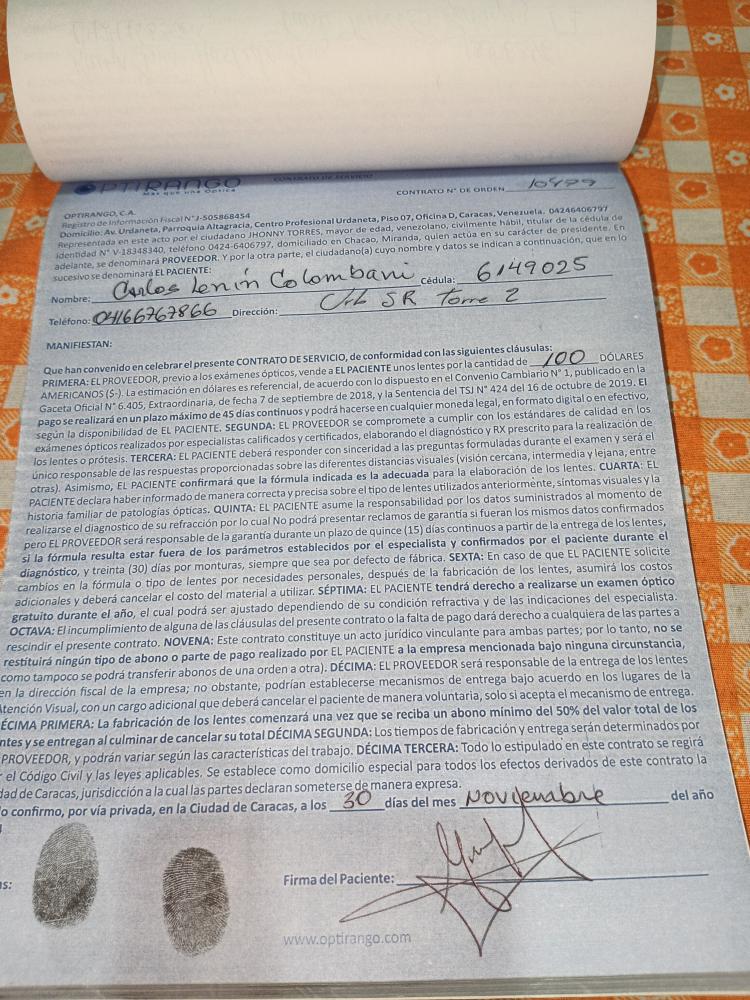 OPTIRANGO
Más que una Óptica
CONTRATO DE SERVICIO
CONTRATO N° DE ORDEN 10499
OPTIRANGO, C.A.
Registro de Información Fiscal N° J-505868454
Domicilio: Av. Urdaneta, Parroquia Altagracia, Centro Profesional Urdaneta, Piso 07, Oficina D, Caracas, Venezuela. 04246406797
Representada en este acto por el ciudadano JHONNY TORRES, mayor de edad, venezolano, civilmente hábil, titular de la cédula de
Identidad N° V-18348340, teléfono 0424-6406797, domiciliado en Chacao, Miranda, quien actúa en su carácter de presidente. En
adelante, se denominará PROVEEDOR. Y por la otra parte, el ciudadano(a) cuyo nombre y datos se indican a continuación, que en lo
sucesivo se denominará EL PACIENTE:
Nombre: Carlos Lenín Colombani Cédula: 6149025
Teléfono: 04166767866 Dirección: Urb SR Torre 2
MANIFIESTAN:
Que han convenido en celebrar el presente CONTRATO DE SERVICIO, de conformidad con las siguientes cláusulas:
PRIMERA: EL PROVEEDOR, previo a los exámenes ópticos, vende a EL PACIENTE unos lentes por la cantidad de 100 DÓLARES
AMERICANOS ($-). La estimación en dólares es referencial, de acuerdo con lo dispuesto en el Convenio Cambiario N° 1, publicado en la
Gaceta Oficial N° 6.405, Extraordinaria, de fecha 7 de septiembre de 2018, y la Sentencia del TSJ N° 424 del 16 de octubre de 2019. El
pago se realizará en un plazo máximo de 45 días continuos y podrá hacerse en cualquier moneda legal, en formato digital o en efectivo,
según la disponibilidad de EL PACIENTE. SEGUNDA: EL PROVEEDOR se compromete a cumplir con los estándares de calidad en los
exámenes ópticos realizados por especialistas calificados y certificados, elaborando el diagnóstico y RX prescrito para la realización de
los lentes o prótesis. TERCERA: EL PACIENTE deberá responder con sinceridad a las preguntas formuladas durante el examen y será el
único responsable de las respuestas proporcionadas sobre las diferentes distancias visuales (visión cercana, intermedia y lejana, entre
otras). Asimismo, EL PACIENTE confirmará que la fórmula indicada es la adecuada para la elaboración de los lentes. CUARTA: EL
PACIENTE declara haber informado de manera correcta y precisa sobre el tipo de lentes utilizados anteriormente, síntomas visuales y la
historia familiar de patologías ópticas. QUINTA: EL PACIENTE asume la responsabilidad por los datos suministrados al momento de
realizarse el diagnostico de su refracción por lo cual No podrá presentar reclamos de garantía si fueran los mismos datos confirmados
pero EL PROVEEDOR será responsable de la garantía durante un plazo de quince (15) días continuos a partir de la entrega de los lentes,
si la fórmula resulta estar fuera de los parámetros establecidos por el especialista y confirmados por el paciente durante el
diagnóstico, y treinta (30) días por monturas, siempre que sea por defecto de fábrica. SEXTA: En caso de que EL PACIENTE solicite
cambios en la fórmula o tipo de lentes por necesidades personales, después de la fabricación de los lentes, asumirá los costos
adicionales y deberá cancelar el costo del material a utilizar. SÉPTIMA: EL PACIENTE tendrá derecho a realizarse un examen óptico
gratuito durante el año, el cual podrá ser ajustado dependiendo de su condición refractiva y de las indicaciones del especialista.
OCTAVA: El incumplimiento de alguna de las cláusulas del presente contrato o la falta de pago dará derecho a cualquiera de las partes a
rescindir el presente contrato. NOVENA: Este contrato constituye un acto jurídico vinculante para ambas partes; por lo tanto, no se
restituirá ningún tipo de abono o parte de pago realizado por EL PACIENTE a la empresa mencionada bajo ninguna circunstancia,
como tampoco se podrá transferir abonos de una orden a otra). DÉCIMA: EL PROVEEDOR será responsable de la entrega de los lentes
en la dirección fiscal de la empresa; no obstante, podrían establecerse mecanismos de entrega bajo acuerdo en los lugares de la
Atención Visual, con un cargo adicional que deberá cancelar el paciente de manera voluntaria, solo si acepta el mecanismo de entrega.
ÉCIMA PRIMERA: La fabricación de los lentes comenzará una vez que se reciba un abono mínimo del 50% del valor total de los
ntes y se entregan al culminar de cancelar su total DÉCIMA SEGUNDA: Los tiempos de fabricación y entrega serán determinados por
PROVEEDOR, y podrán variar según las características del trabajo. DÉCIMA TERCERA: Todo lo estipulado en este contrato se regirá
r el Código Civil y las leyes aplicables. Se establece como domicilio especial para todos los efectos derivados de este contrato la
dad de Caracas, jurisdicción a la cual las partes declaran someterse de manera expresa.
lo confirmo, por vía privada, en la Ciudad de Caracas, a los 30 días del mes Noviembre del año
s:
Firma del Paciente:
www.optirango.com